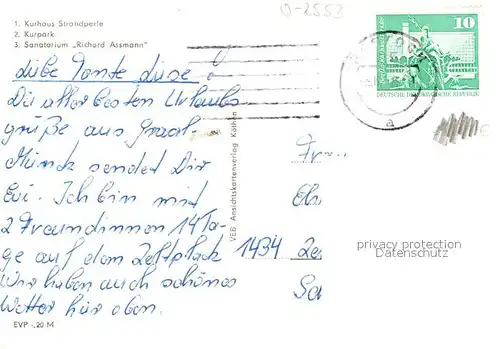 1. Kurhaus Strandperle
2. Kurpark
3. Sanatorium „Richard Assmann"
0-2552
10
DEUTSCHE DEMOKRATISCHE REPUBLIK
a
Liebe Tante Luise!
Die allerbesten Urlaubs
grüße aus Graal-
Müritz sendet Dir
Evi. Ich bin mit
2 Freundinnen 14 Ta-
ge auf dem Zeltplatz
Wir haben auch schönes
Wetter hier oben.
VEB Ansichtskartenverlag Köthen
Fr
1434
privacy protection
Datenschutz
EVP -,20 M